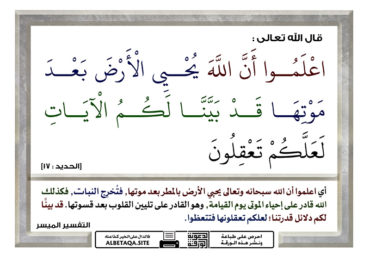 قال الله تعالى :
اعْلَمُوا أَنَّ اللَّهَ يُحْيِي الْأَرْضَ بَعْدَ
مَوْتِهَا قَدْ بَيَّنَّا لَكُمُ الْآيَاتِ
لَعَلَّكُمْ تَعْقِلُونَ
[الحديد : ١٧]
أي اعلموا أن الله سبحانه وتعالى يحيي الأرض بالمطر بعد موتها, فتُخرج النبات, فكذلك
الله قادر على إحياء الموتى يوم القيامة, وهو القادر على تليين القلوب بعد قسوتها. قد بينَّا
لكم دلائل قدرتنا؛ لعلكم تعقلونها فتتعظوا.
التفسير الميسر
احرص على طباعة
ونشر هذه الورقة
ALBETAQA.SITE